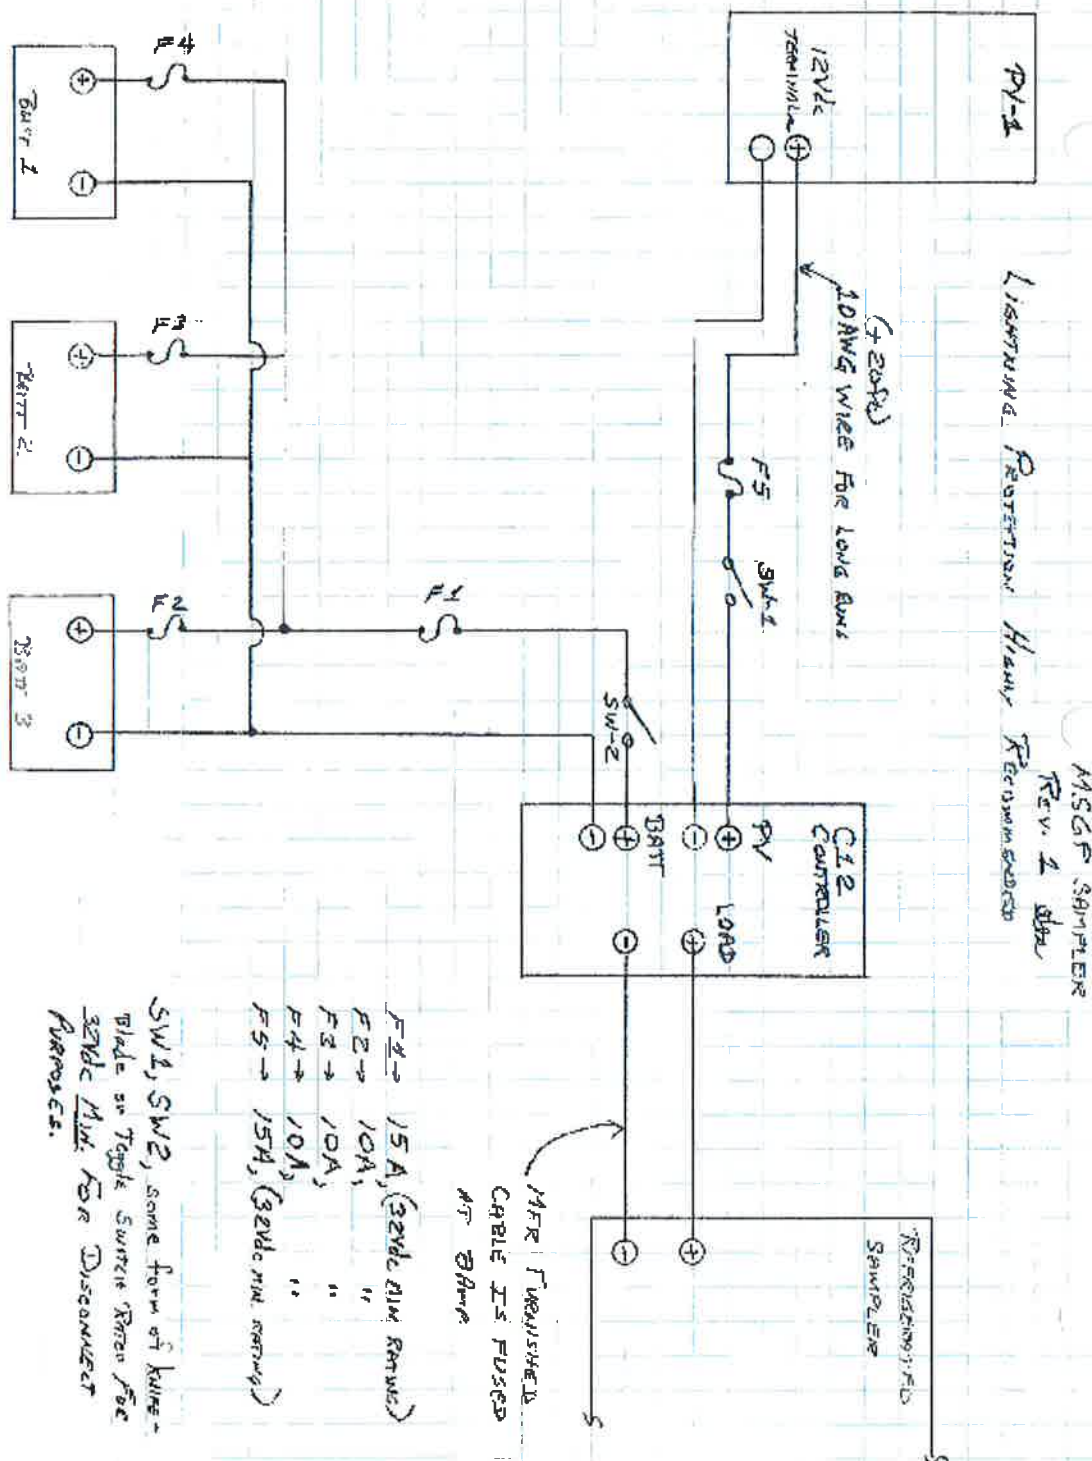 MSGF SAMPLER
REV. 1
LIGHTNING PROTECTION HIGHLY RECOMMENDED
PV-1
12Vdc
TERMINALS
+
(+ 20ft)
10AWG WIRE FOR LONG RUNS
F5
SW-1
C12
CONTROLLER
PV
+
-
LOAD
+
-
BATT
+
-
REFRIGERATED
SAMPLER
+
-
MFR FURNISHED
CABLE IS FUSED
AT 8Amp
SW-2
F1
F4
F3
F2
BATT 1
+
-
BATT 2
+
-
BATT 3
+
-
F1→ 15A, (32Vdc MIN RATING)
F2→ 10A, "
F3→ 10A, "
F4→ 10A, "
F5→ 15A, (32Vdc MIN. RATING)
SW1, SW2, some form of KNIFE-
Blade or Toggle SWITCH RATED FOR
32Vdc MIN. FOR DISCONNECT
PURPOSES.